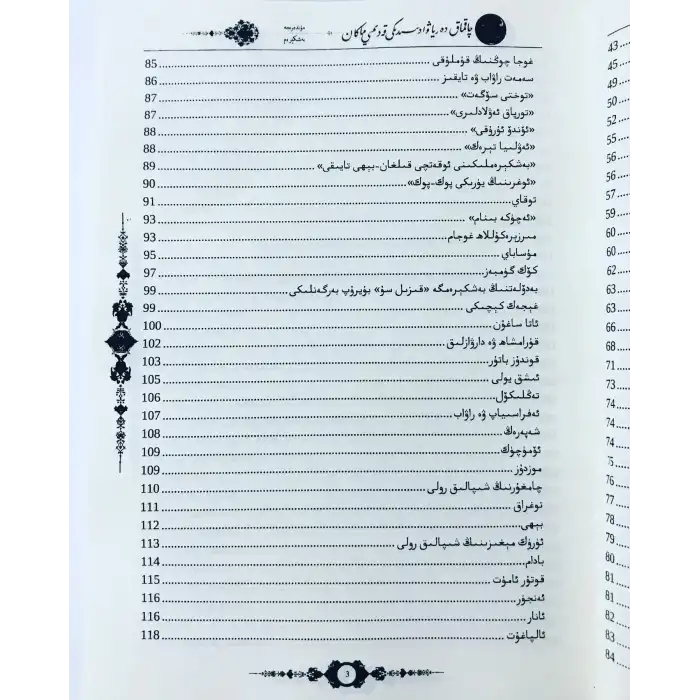 چاقماق دەرياۋادىسىدىكى قەدىمىي ماكان
مۇندەرىجە
بەشكېرەم
غوجا چوڭنىڭ قۇملۇقى 85
سەمەت راۋاب ۋە تايقىز 86
«توختى سۆگەت» 87
«تورپاق ئەۋلادلىرى» 87
«ئۇندۇ ئۇرۇقى» 88
«ئەۋلىيا تېرەك» 88
«بەشكېرەملىكىنى ئوقەتچى قىلغان-بېھى تايىقى» 89
«ئوغرىنىڭ يۈرىكى پوك-پوك» 90
توقاي 91
«ئەچۈكە بىنام» 93
مىرزىرەكۇللاھ غوجام 93
مۇساباي 95
كۆك گۈمبەز 97
بەدۆلەتنىڭ بەشكېرەمگە «قىزىل سۇ» بۇيرۇپ بەرگەنلىكى 99
غېجەك كېچىكى 99
ئاتا ساغۇن 100
قۇرامشاھ ۋە دارۋازلىق 102
قۇندۇز باتۇر 103
ئىشق يولى 105
تەڭلىكۆل 106
ئەفراسىياپ ۋە راۋاب 107
شەپەرەڭ 108
ئۆمۈچۈك 109
موزدۇز 109
چامغۇرنىڭ شىپالىق رولى 110
توغراق 111
بېھى 112
ئۈرۈك مېغىزىنىڭ شىپالىق رولى 113
بادام 114
قوتۇر ئامۇت 115
ئەنجۈر 116
ئانار 116
ئالپاغۇت 118
3
43
45
49
50
52
55
56
56
57
59
60
60
62
63
63
66
68
71
73
74
74
74
75
76
77
78
79
80
81
81
82
83
84